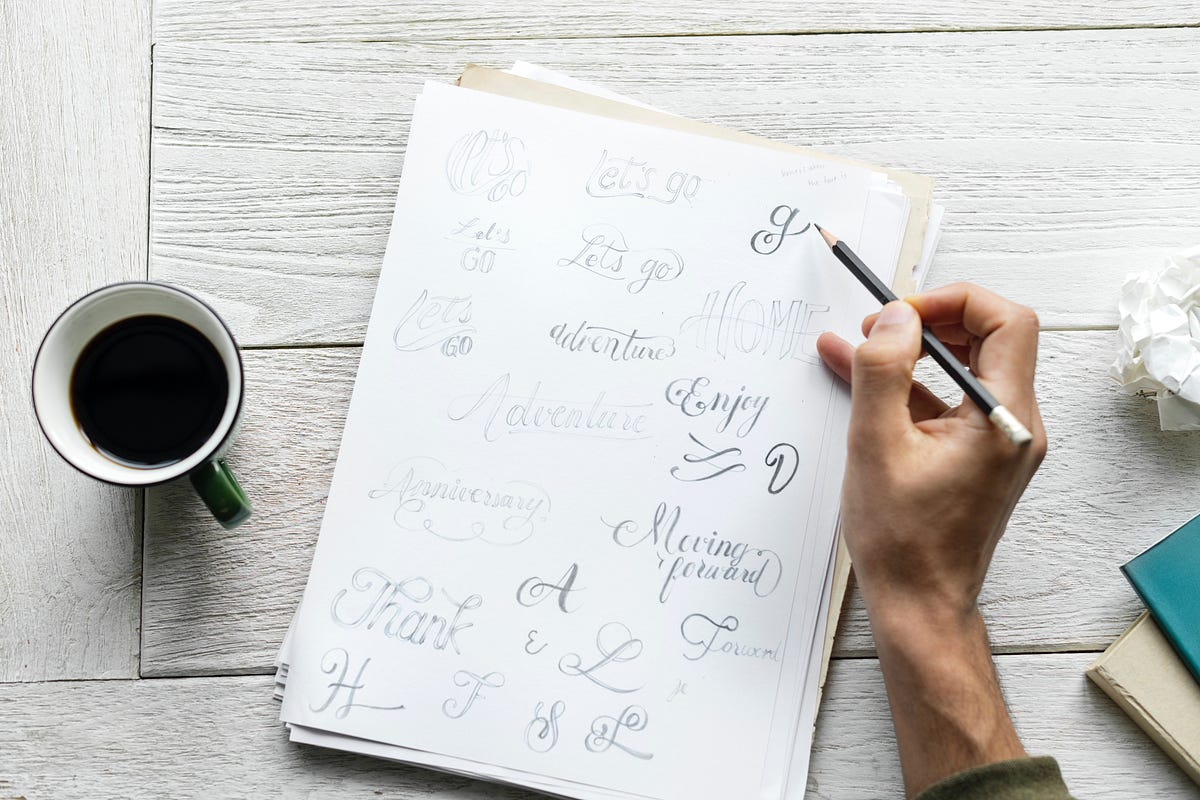 Let's
GO
Let's go
g
Let's
GO
Lets go
Let's
GO
adventure
HOME
Adventure
Enjoy
D
Anniversary
Moving
forward
A
Thank
&
L
Forward
H
F
S
L